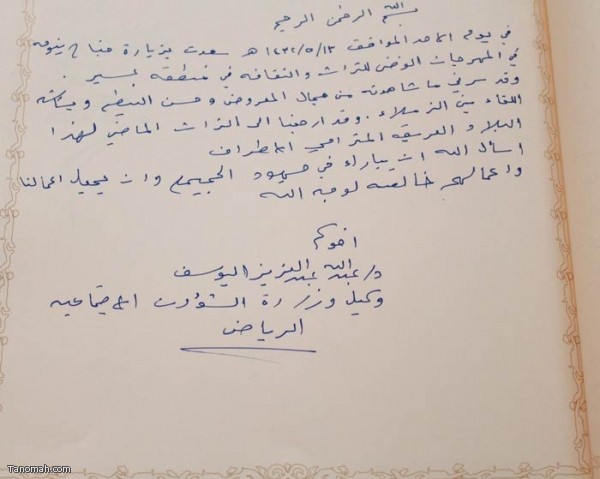 بسم الله الرحمن الرحيم
في يوم الاحد الموافق ١٤٣٢/٥/١٣ هـ سعدت بزيارة جناح تنومه
في المهرجان الوطني للتراث والثقافه في منطقة عسير.
وقد سرني ما شاهدته من جمال المعروض وحسن التنظيم وبشاشة
اللقاء من الزملاء. وقد ارجعنا الى التراث الماضي لهذا
البلاد العريقه المترامي الاطراف
اسأل الله ان يبارك في جهود الجميع وان يجعل اعمالنا
واعمالهم خالصه لوجه الله
اخوكم
د/ عبدالله عبدالعزيز اليوسف
وكيل وزارة الشؤون الاجتماعيه
الرياض
Tanomah.com